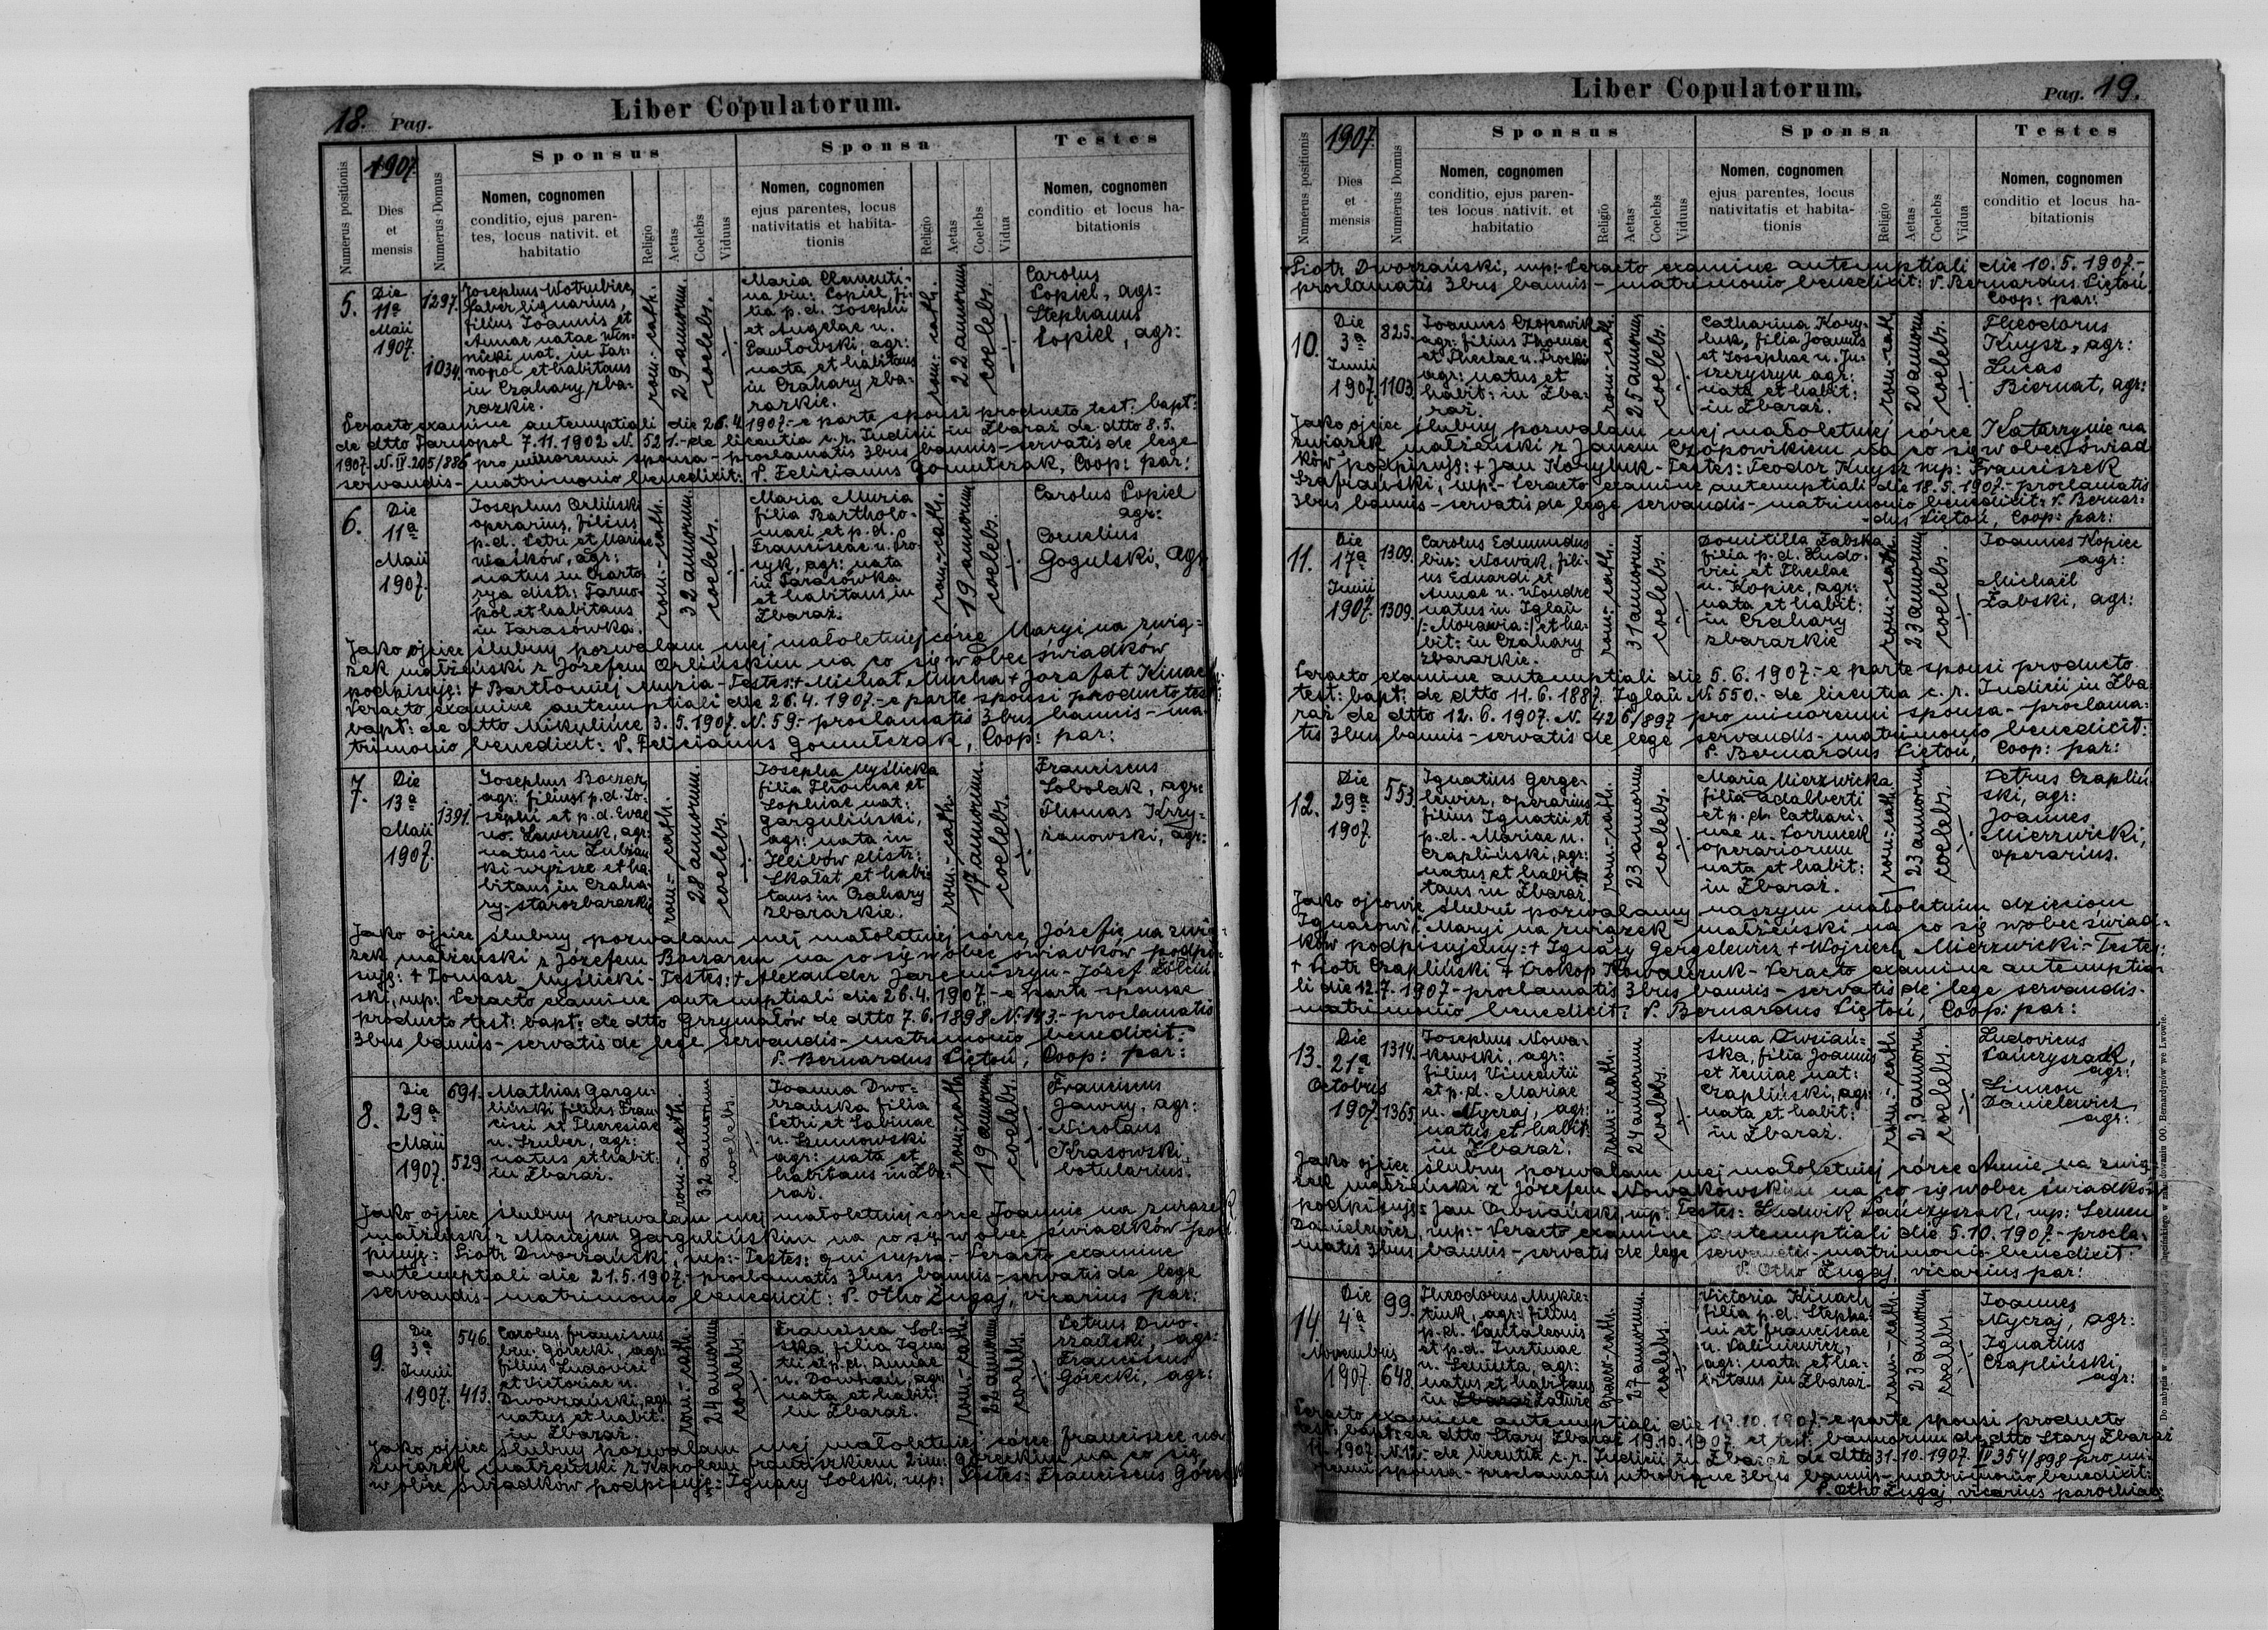 18. Pag.
Liber Copulatorum.
Numerus positionis
1907.
Dies
et
mensis
Numerus Domus
Sponsus
Nomen, cognomen
conditio, ejus paren-
tes, locus nativit. et
habitatio
Religio
Aetas
Coelebs
Viduus
Sponsa
Nomen, cognomen
ejus parentes, locus
nativitatis et habita-
tionis
Religio
Aetas
Coelebs
Vidua
Testes
Nomen, cognomen
conditio et locus ha-
bitationis
5.
Die
11a
Maii
1907.
1297.
1034.
Josephus Wotrubiec,
faber lignarius,
filius Joannis et
Annae natae Win-
nicki nat. in Tar-
nopol et habitans
in Czahary zba-
razkie.
rom.-cath.
29 annorum.
coelebs.
Maria Clementi-
na bin: Popiel, fi-
lia p.d. Josephi
et Angelae n.
Pawłowski, agr:
nata et habitans
in Czahary zba-
razkie.
rom:-cath.
22 annorum
coelebs.
Carolus
Popiel, agr:
Stephanus
Popiel, agr:
Peracto examine antenuptiali die 26.4.1907.- e parte sponsi producto test: bapt:
de dtto Tarnopol 7.11.1902 N. 521.- de licentia c.r. Judicii in Zbaraż de dtto 8.5.
1907. N. IV. 205/886 pro minorenni sponsa - proclamatis 3bus bannis - servatis de lege
servandis - matrimonio benedixit: P. Felicianus Gonnttzak, Coop: par:
6.
Die
11a
Maii
1907.
Josephus Orliński
operarius, filius
p.d. Petri et Mariae
Waśków, agr:
natus in Czarto-
rya distr: Tarno-
pol et habitans
in Tarasówka.
rom:-cath.
32 annorum.
coelebs.
Maria Muria
filia Bartholo-
maei et p.d.
Franciscae n. Pro-
syk, agr: nata
in Tarasówka
et habitans in
Zbaraż.
rom:-cath.
19 annorum
coelebs.
Carolus Popiel
agr:
Cornelius
Gogulski, agr
Jako ojciec ślubny pozwalam mej małoletniej córce Maryi na zwią-
zek małżeński z Józefem Orlińskim na co się wobec świadków
podpisuję: + Bartłomiej Muria - Testes: + Michał Mucha + Jozafat Kinac
Peracto examine antenuptiali die 26.4.1907.- e parte sponsi producto test
bapt: de dtto Mikulińce 3.5.1907. N. 59.- proclamatis 3bus bannis - ma-
trimonio benedixit: P. Felicianus Gonnttzak, Coop: par:
7.
Die
13a
Maii
1907.
1391.
Josephus Boczar,
agr: filius p.d. Jo-
sephi et p.d. Evae
no. Ławczuk, agr:
natus in Lubian-
ki wyższe et ha-
bitans in Czaha-
ry-starozbarazkie
rom:-cath.
28 annorum.
coelebs.
Josepha Myślicka
filia Thomae et
Sophiae nat:
Garguliński,
agr: nata in
Hlibów distr:
Skałat et habi-
tans in Czahary
zbarazkie.
rom:-cath.
17 annorum.
coelebs.
Franciscus
Sobolak, agr:
Thomas Krzy-
żanowski, agr:
Jako ojciec ślubny pozwalam mej małoletniej córce, Józefie na zwią-
zek małżeński z Józefem Boczarem na co się wobec świadków podpi-
suję: + Tomasz Myślicki - Testes: + Alexander Jaremiszyn - Józef
ski, mp: Peracto examine antenuptiali die 26.4.1907.- e parte sponsae
producto test: bapt: de dtto Grzymałów de dtto 7.6.1898 N. 143.- proclamatis
3bus bannis - servatis de lege servandis - matrimonio benedixit:
P. Bernardus Piętoń, Coop: par:
8.
Die
29a
Maii
1907.
691.
529.
Mathias Gargu-
liński filius Fran-
cisci et Theresiae
n. Szuber, agr:
natus et habit:
in Zbaraż.
rom:-cath.
32 annorum
coelebs.
Joanna Dwo-
rzańska filia
Petri et Sabinae
n. Szumowski
agr: nata et
habitans in Zba-
raż.
rom:-cath
19 annorum
coelebs.
Franciscus
Jawny, agr:
Nicolaus
Krasowski,
botularius.
Jako ojciec ślubny pozwalam mej małoletniej córce Joannie na związek
małżeński z Maciejem Gargulińskim na co się wobec świadków pod-
pisuję: Piotr Dworzański, mp:- Testes: qui supra - Peracto examine
antenuptiali die 21.5.1907.- proclamatis 3bus bannis - servatis de lege
servandis - matrimonio benedixit: P. Otho Żugaj, vicarius par:
9.
Die
3a
Junii
1907.
546.
413.
Carolus Franciscus
bin: Górecki, agr:
filius Ludovici
et Victoriae n.
Dworzański, agr:
natus et habit:
in Zbaraż.
rom:-cath.
24 annorum
coelebs
Francisca Sol-
ska, filia Igna-
tii et p.d. Annae
n. Downań, agr:
nata et habit:
in Zbaraż.
rom:-cath.
22 annorum
coelebs.
Petrus Dwo-
rzański, agr:
Franciscus
Górecki, agr:
Jako ojciec ślubny pozwalam mej małoletniej córce Francisce na
związek małżeński z Karolem Franciszkiem 2im: Góreckim na co się
wobec świadków podpisuję: Ignacy Solski, mp: Testes: Franciscus Górec
Liber Copulatorum.
Pag. 19.
Numerus positionis
1907.
Dies
et
mensis
Numerus Domus
Sponsus
Nomen, cognomen
conditio, ejus paren-
tes locus nativit. et
habitatio
Religio
Aetas
Coelebs
Viduus
Sponsa
Nomen, cognomen
ejus parentes, locus
nativitatis et habita-
tionis
Religio
Aetas
Coelebs
Vidua
Testes
Nomen, cognomen
conditio et locus ha-
bitationis
Piotr Dworzański, mp:- Peracto examine antenuptiali die 10.5.1907.-
proclamatis 3bus bannis - matrimonio benedixit: P. Bernardus Piętoń,
Coop: par:
10.
Die
3a
Junii
1907.
825.
1103.
Joannes Czopowik
agr: filius Thomae
et Theclae n. Trocki
agr: natus et
habit: in Zba-
raż.
rom:-cath.
25 annorum
coelebs.
Catharina Kory-
luk, filia Joannis
et Josephae n. Ju-
szczyszyn agr:
nata et habit:
in Zbaraż.
rom:-cath.
20 annorum
coelebs.
Theodorus
Knysz, agr:
Lucas
Biernat, agr:
Jako ojciec ślubny pozwalam mej małoletniej córce Katarzynie na
związek małżeński z Janem Czopowikiem na co się wobec świad
ków podpisuję: + Jan Koryluk - Testes: Teodor Knysz mp: Franciszek
Szafrański, mp:- Peracto examine antenuptiali die 18.5.1907.- proclamatis
3bus bannis - servatis de lege servandis - matrimonio benedixit: P. Bernar-
dus Piętoń, Coop: par:
11.
Die
17a
Junii
1907.
1309.
1309.
Carolus Edmundus
bin: Nowak, fili-
us Eduardi et
Annae n. Wondre
natus in Iglau
/: Morawia:/ et ha-
bit: in Czahary
zbarazkie.
rom:-cath.
31 annorum
coelebs.
Domitilla Żabska
filia p.d. Ludo-
vici et Theclae
n. Kopiec, agr:
nata et habit:
in Czahary
zbarazkie
rom:-cath.
23 annorum
coelebs.
Joannes Kopiec
agr:
Michaël
Żabski, agr:
Peracto examine antenuptiali die 5.6.1907.- e parte sponsi producto
test: bapt: de dtto 11.6.1887. Iglau N. 550.- de licentia c.r. Judicii in Zba
raż de dtto 12.6.1907. N. 426/897 pro minorenni sponsa - proclama-
tis 3bus bannis - servatis de lege servandis - matrimonio benedixit:
P. Bernardus Piętoń, Coop: par:
12.
Die
29a
1907.
553.
Ignatius Gerge-
lewicz, operarius
filius Ignatii et
p.d. Mariae n.
Czapliński, agr:
natus et habi-
tans in Zbaraż
rom:-cath.
23 annorum
coelebs.
Maria Mierzwicka
filia Adalberti
et p.d. Cathari-
nae n.
operariorum
nata et habit:
in Zbaraż.
rom:-cath
23 annorum
coelebs.
Petrus Czapliń
ski, agr:
Joannes
Mierzwicki,
operarius.
Jako ojcowie ślubni pozwalamy naszym małoletnim dzieciom
Ignacowi i Maryi na związek małżeński na co się wobec świad-
ków podpisujemy: + Ignacy Gergelewicz + Wojciech Mierzwicki - Testes:
+ Piotr Czapliński + Prokop Kowalczuk - Peracto examine antenuptia-
li die 12.7.1907 - proclamatis 3bus bannis - servatis de lege servandis -
matrimonio benedixit: P. Bernardus Piętoń, Coop: par:
13.
Die
21a
Octobris
1907.
1314.
1365
Josephus Nowa-
kowski, agr:
filius Vincentii
et p.d. Mariae
n. Nyczaj, agr:
natus et habit:
in Zbaraż.
rom:-cath.
24 annorum
coelebs.
Anna Owsiań-
ska, filia Joannis
et Xeniae nat:
Czapliński, agr:
nata et habit:
in Zbaraż.
rom:-cath.
23 annorum
coelebs.
Ludovicus
Pańczyszak,
agr:
Simeon
Danielewicz
agr:
Jako ojciec ślubny pozwalam mej małoletniej córce Annie na zwią-
zek małżeński z Józefem Nowakowskim na co się wobec świadków
podpisuję: Jan Owsiański, mp: Testes: Ludwik Pańczyszak, mp: Semen
Danielewicz, mp:- Peracto examine antenuptiali die 5.10.1907 - procla-
matis 3bus bannis - servatis de lege servandis - matrimonio benedixit:
P. Otho Żugaj, vicarius par:
14.
Die
4a
Novembris
1907.
99.
648.
Theodorus Mykie-
tiuk, agr: filius
p.d. Pantaleonis
et p.d. Justinae
n. Semuta, agr:
natus et habitans
in Zbaraż
graeco-cath.
27 annorum.
coelebs
Victoria Kinach
filia p.d. Stepha-
ni et Franciscae
n. Paliniewicz,
agr: nata et ha-
bitans in Zbaraż.
rom:-cath.
23 annorum
coelebs.
Joannes
Nyczaj, agr:
Ignatius
Czapliński,
agr:
Peracto examine antenuptiali die 19.10.1907.- e parte sponsi producto
test: bapt: de dtto Stary Zbaraż 19.10.1907. et test: bannorum de dtto Stary Zbaraż
11.1907. N. 12.- de licentia c.r. Judicii in Zbaraż de dtto 31.10.1907. IV 354/898 pro mi-
norenni sponsa - proclamatis utrobique 3bus bannis - matrimonio benedixit:
P. Otho Żugaj, vicarius parochiae